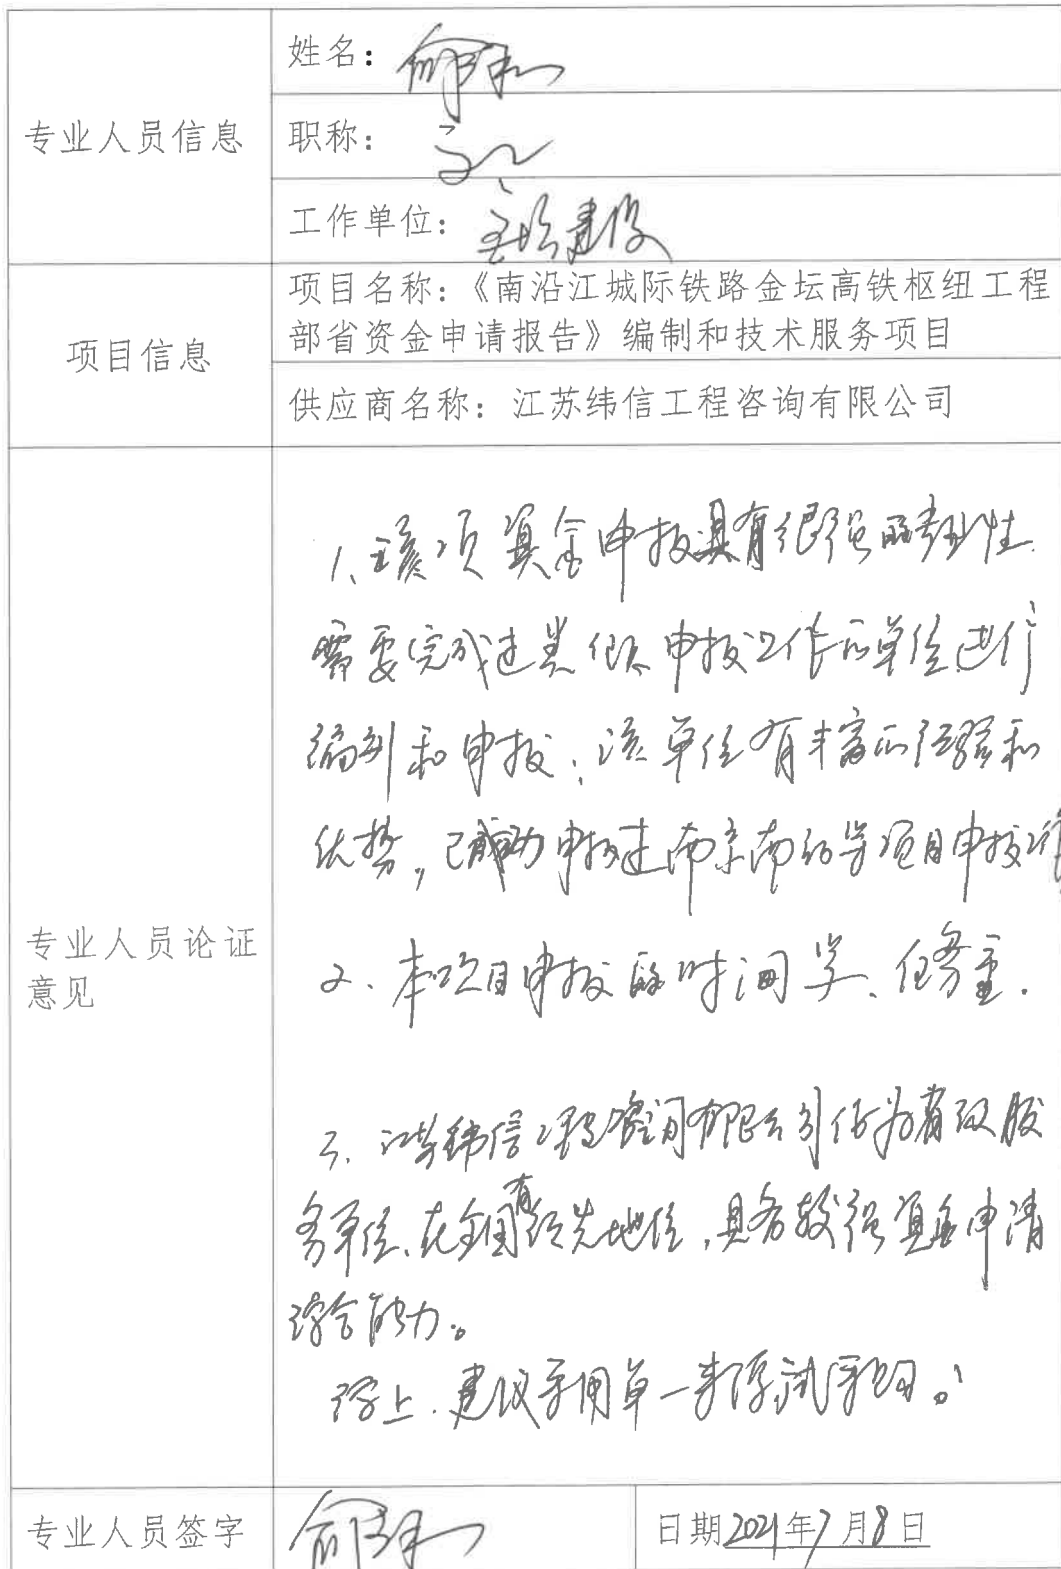 专业人员信息
姓名：
职称：高工
工作单位：金坛建设
项目信息
项目名称：《南沿江城际铁路金坛高铁枢纽工程
部省资金申请报告》编制和技术服务项目
供应商名称：江苏纬信工程咨询有限公司
专业人员论证
意见
1、该项资金申报具有很强的专业性
需要完成过类似申报工作的单位进行
编制和申报；该单位有丰富的经验和
优势，已成功申报过南京南站等项目申报工作
2、本项目申报的时间紧、任务重.
3、江苏纬信工程咨询有限公司作为有效服
务单位、在全国有领先地位，具备较强资金申请
综合能力。
综上.建议采用单一来源试采购。
专业人员签字
日期2021年7月8日